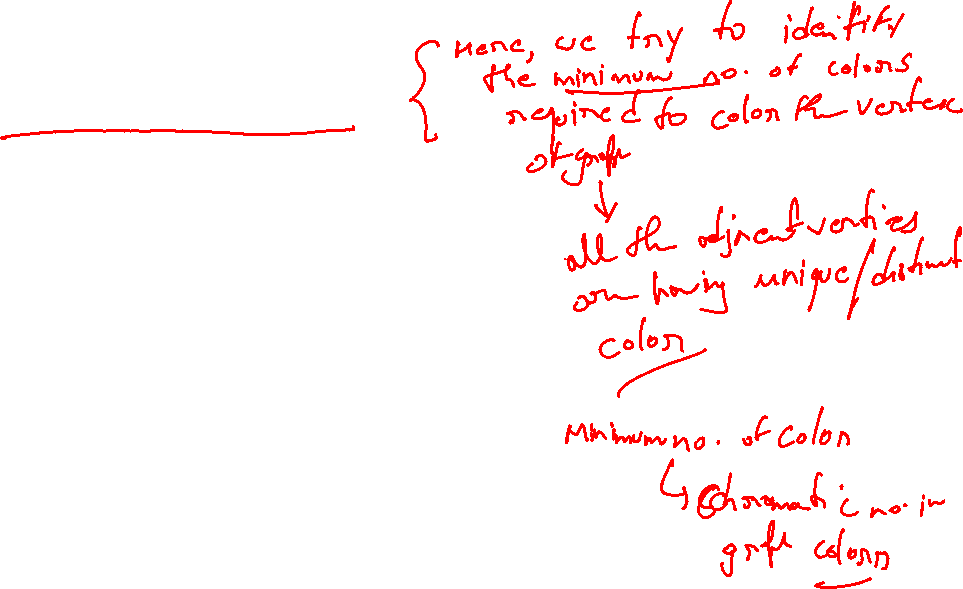 Here, we try to identify
the minimum no. of colors
required to color the vertex
of graph
all the adjacent vertices
are having unique/distinct
color
Minimum no. of color
Chromatic no. in
graph color